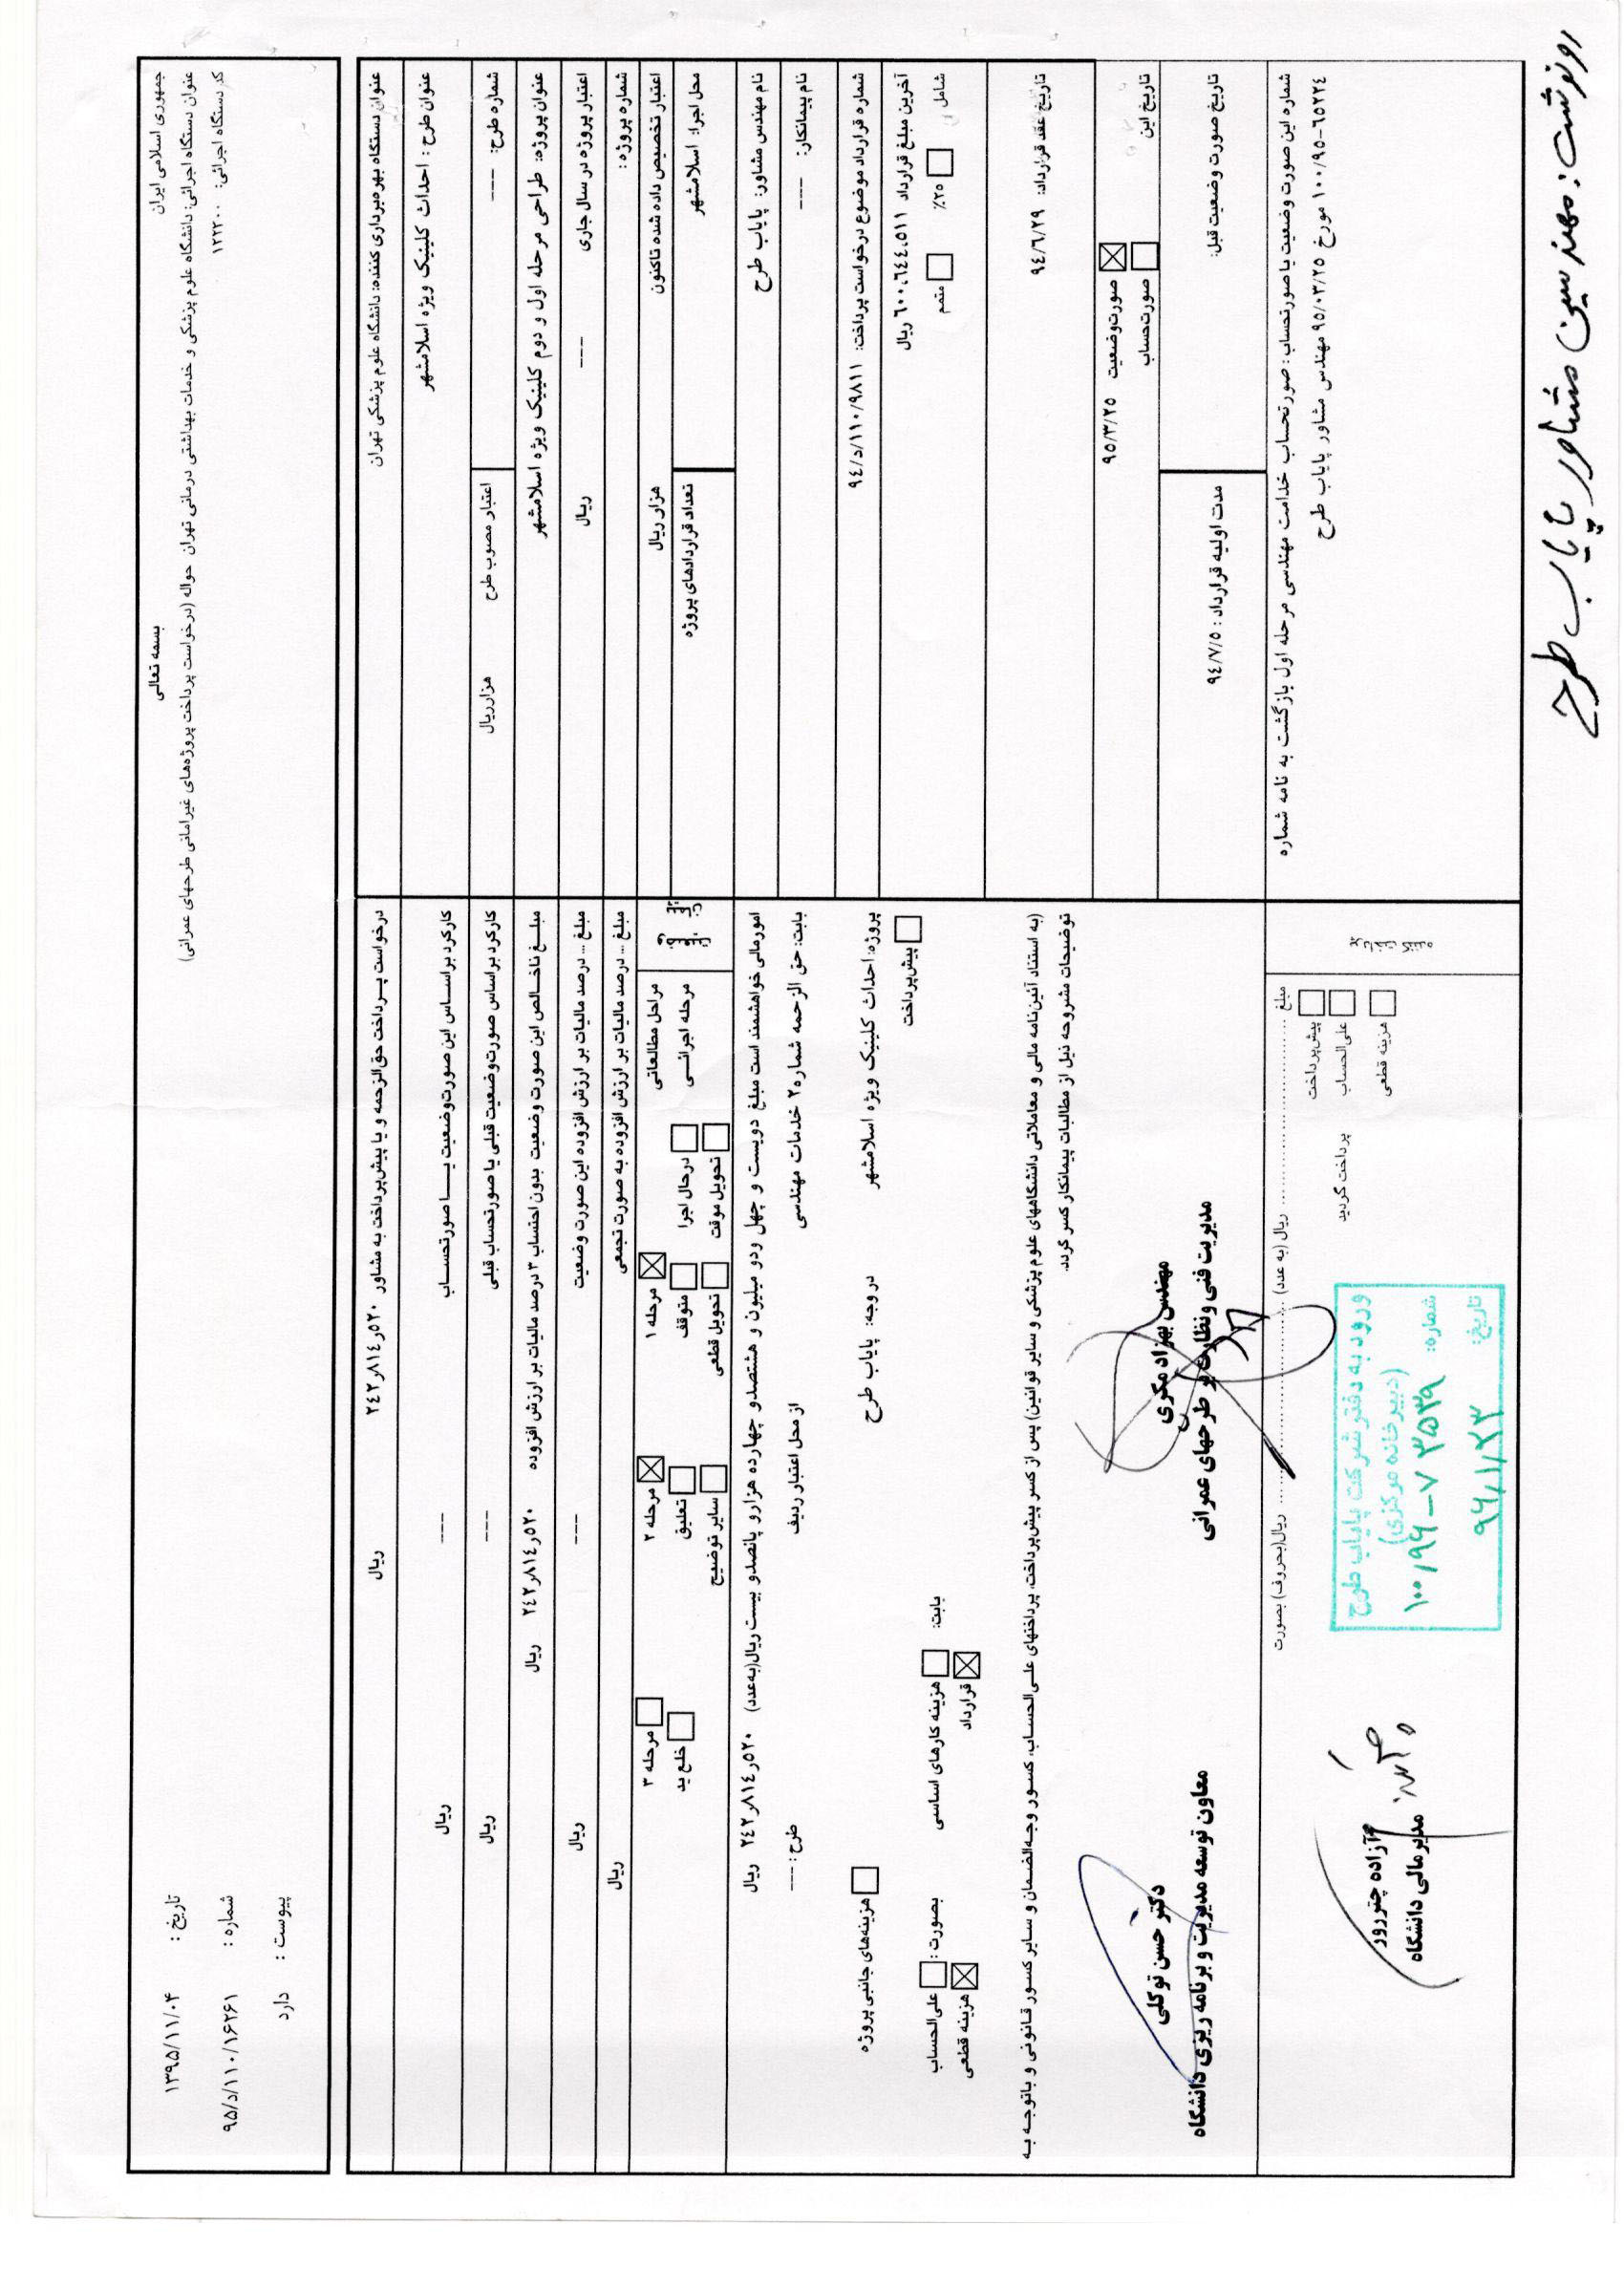 بسمه تعالی
جمهوری اسلامی ایران
عنوان دستگاه اجرائی: دانشگاه علوم پزشکی و خدمات بهداشتی درمانی تهران حواله (درخواست پرداخت پروژه‌های غیرامانی طرحهای عمرانی)
کد دستگاه اجرائی: ۱۲۲۲۰۰
تاریخ : ۱۳۹۵/۱۱/۰۴
شماره : ۹۵/د/۱۱۰/۱۶۲۶۱
پیوست : دارد
عنوان دستگاه بهره‌برداری کننده: دانشگاه علوم پزشکی تهران
عنوان طرح : احداث کلینیک ویژه اسلامشهر
شماره طرح: --- اعتبار مصوب طرح هزار ریال
عنوان پروژه: طراحی مرحله اول و دوم کلینیک ویژه اسلامشهر
اعتبار پروژه در سال جاری --- ریال
شماره پروژه :
اعتبار تخصیص داده شده تاکنون هزار ریال
محل اجرا: اسلامشهر تعداد قراردادهای پروژه
نام مهندس مشاور: پایاب طرح
نام پیمانکار: ---
شماره قرارداد موضوع درخواست پرداخت: ۹۴/د/۱۱۰/۹۸۱۱
آخرین مبلغ قرارداد ۶۰۰،۶۴۴،۵۱۱ ریال
شامل ۲۵٪ متمم
تاریخ عقد قرارداد: ۹۴/۶/۲۹
تاریخ این صورت‌حساب
صورت‌وضعیت ۹۵/۳/۲۵
تاریخ صورت وضعیت قبل: مدت اولیه قرارداد : ۹۴/۷/۵
شماره این صورت وضعیت یا صورتحساب : صورتحساب خدامت مهندسی مرحله اول بازگشت به نامه شماره
۱۰۰/۹۵-۶۵۲۲۴ مورخ ۹۵/۰۳/۲۵ مهندس مشاور پایاب طرح
درخواست پرداخت حق‌الزحمه و یا پیش‌پرداخت به مشاور ۲۴۲ر۸۱۴ر۵۲۰ ریال
کارکرد براساس این صورت‌وضعیت یا صورتحساب --- ریال
کارکرد براساس صورت‌وضعیت قبلی یا صورتحساب قبلی --- ریال
مبلغ ناخالص این صورت وضعیت بدون احتساب ۳ درصد مالیات بر ارزش افزوده ۲۴۲ر۸۱۴ر۵۲۰ ریال
مبلغ ... درصد مالیات بر ارزش افزوده این صورت وضعیت --- ریال
مبلغ ... درصد مالیات بر ارزش افزوده به صورت تجمعی ریال
مراحل مطالعاتی مرحله ۱ مرحله ۲ مرحله ۳
مرحله اجرائی درحال اجرا متوقف تعلیق خلع ید
تحویل موقت تحویل قطعی سایر توضیح
امورمالی خواهشمند است مبلغ دویست و چهل ودو میلیون و هشتصدو چهارده هزارو پانصدو بیست ریال(به عدد) ۲۴۲ر۸۱۴ر۵۲۰ ریال
بابت: حق الزحمه شماره ۲ خدمات مهندسی از محل اعتبار ردیف طرح : ---
پروژه: احداث کلینیک ویژه اسلامشهر در وجه: پایاب طرح هزینه‌های جانبی پروژه
پیش‌پرداخت بابت: هزینه کارهای اساسی بصورت : علی‌الحساب
قرارداد هزینه قطعی
(به استناد آئین‌نامه مالی و معاملاتی دانشگاههای علوم پزشکی و سایر قوانین) پس از کسر پیش‌پرداخت، پرداختهای علی‌الحساب، کسور وجه‌الضمان و سایر کسور قانونی و باتوجه به
توضیحات مشروحه ذیل از مطالبات پیمانکار کسر گردد.
مهندس بهزاد مکری
مدیریت فنی و نظارت بر طرحهای عمرانی
دکتر حسن توکلی
معاون توسعه مدیریت و برنامه ریزی دانشگاه
پرداخت کننده
مبلغ ........ ریال (به عدد) ........ ریال(بحروف) بصورت
پیش‌پرداخت
علی‌الحساب پرداخت گردید
هزینه قطعی
ورود به دفتر شرکت پایاب طرح
(دبیرخانه مرکزی)
شماره: ۱۰۰/۹۶-۷۳۵۳۹
تاریخ: ۹۶/۱/۲۳
آزاده چترروز
مدیر مالی دانشگاه
رونوشت: مهندسین مشاور پایاب طرح